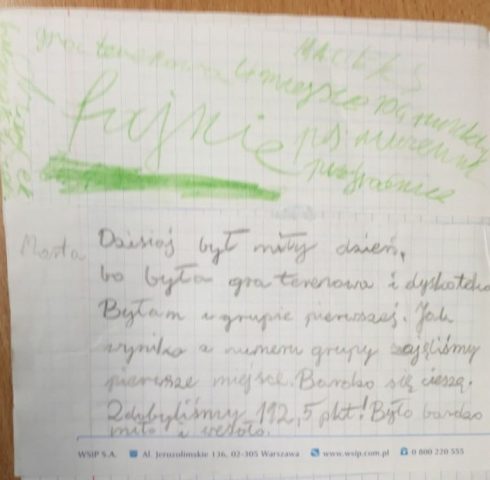 gra terenowa 4 miejsce
fajnie
Marta
Dzisiaj był miły dzień,
bo była gra terenowa i dyskoteka
Byłam w grupie pierwszej. Jak
wynika z numeru grupy zajęliśmy
pierwsze miejsce. Bardzo się cieszę.
Zdobyliśmy 192,5 pkt! Było bardzo
miło i wesoło.
WSiP S.A. Al. Jerozolimskie 136, 02-305 Warszawa www.wsip.com.pl 0 800 220 555